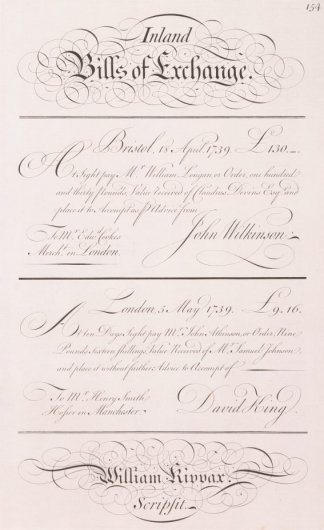 154
Inland
Bills of Exchange.
Bristol, 18 April 1739. £130_.
At Sight pay Mr. William Longan, or Order, one hundred
and thirty Pounds, Value received of Claudius Devins Esqr. and
place it to Accompt as p Advice from
To Mr. Edwd. Cookes
Mercht. in London.
John Wilkinson.
London, 5 May 1739. £9,,16.
At ten Days Sight pay Mr. John Atkinson, or Order, Nine
Pounds sixteen shillings, Value Received of Mr. Samuel Johnson,
and place it without further Advice to Accompt of
To Mr. Henry Smith
Hosier in Manchester.
David King.
William Kippax.
Scripsit.